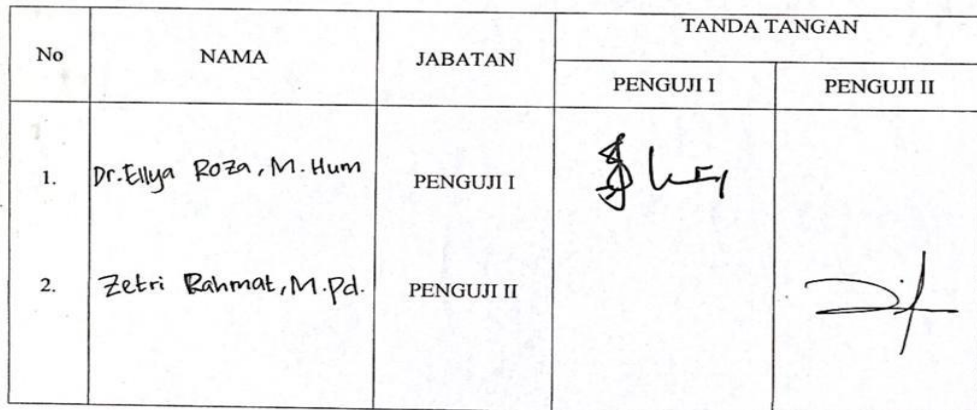 No NAMA JABATAN TANDA TANGAN
PENGUJI I PENGUJI II
1. Dr. Ellya Roza, M. Hum PENGUJI I
2. Zetri Rahmat, M.Pd. PENGUJI II